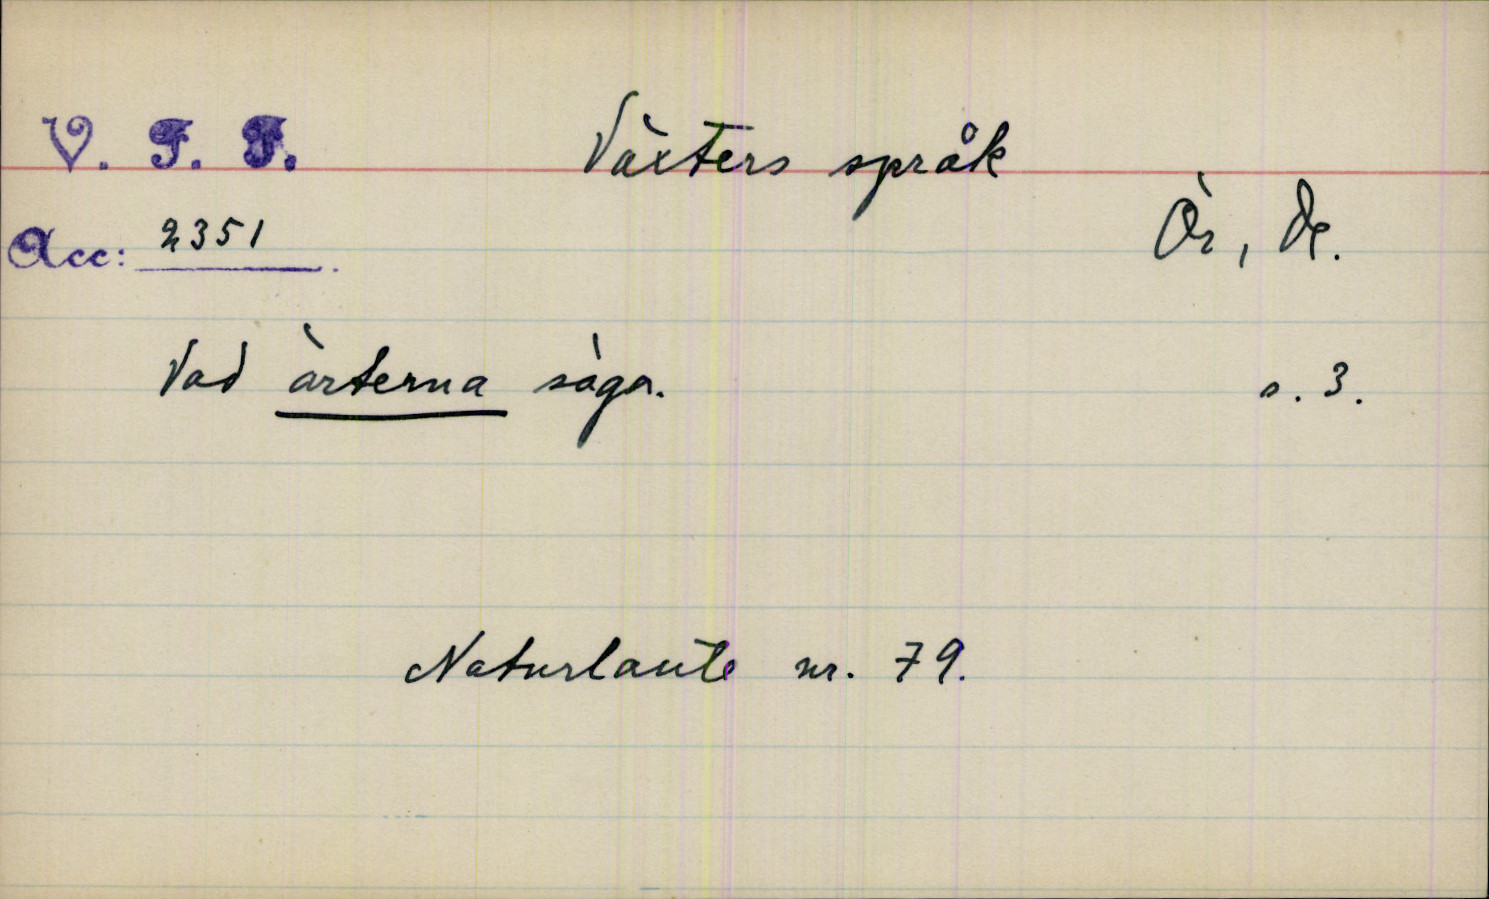 V. F. F. Växters språk
Acc: 2351 Ör, De.
Vad ärterna säga. s. 3.
Naturlaute nr. 79.